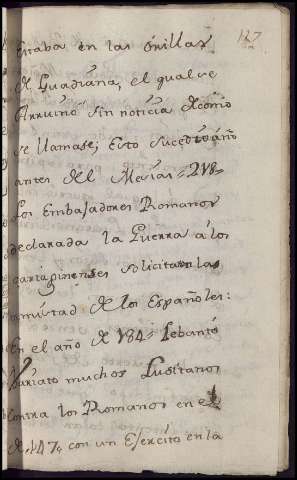 127
estaba en las órillas
de Guadiana, el qual se
Arruinó sin noticia de como
se llamase, Esto sucedió año
antes del Mesias = 218 =
Los Embajadores Romanos
declarada la Guerra a los
cartagineses solicitaron la
amistad de los Españoles:
En el año de 184 = Lebantó
Variato muchos Lusitanos
contra los Romanos en el
de 147 = con un Ejército en la